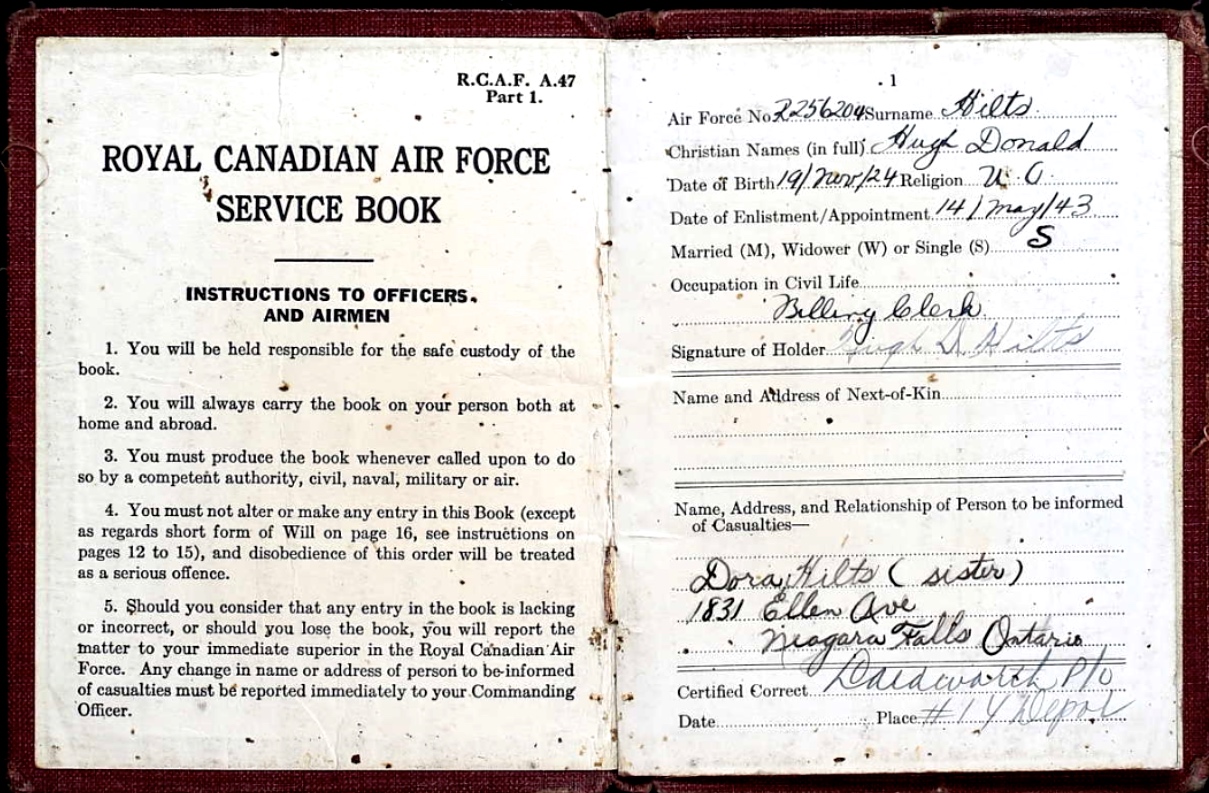 R.C.A.F. A.47
Part 1.
ROYAL CANADIAN AIR FORCE
SERVICE BOOK
INSTRUCTIONS TO OFFICERS
AND AIRMEN
1. You will be held responsible for the safe custody of the
book.
2. You will always carry the book on your person both at
home and abroad.
3. You must produce the book whenever called upon to do
so by a competent authority, civil, naval, military or air.
4. You must not alter or make any entry in this Book (except
as regards short form of Will on page 16, see instructions on
pages 12 to 15), and disobedience of this order will be treated
as a serious offence.
5. Should you consider that any entry in the book is lacking
or incorrect, or should you lose the book, you will report the
matter to your immediate superior in the Royal Canadian Air
Force. Any change in name or address of person to be informed
of casualties must be reported immediately to your Commanding
Officer.
1
Air Force No R256204 Surname Hilts
Christian Names (in full) Hugh Donald
Date of Birth 19/Nov/24 Religion U. C.
Date of Enlistment/Appointment 14/May/43
Married (M), Widower (W) or Single (S) S
Occupation in Civil Life
Billing Clerk
Signature of Holder Hugh D Hilts
Name and Address of Next-of-Kin
Name, Address, and Relationship of Person to be informed
of Casualties—
Dora Hilts (sister)
1831 Ellen Ave
Niagara Falls Ontario
Certified Correct P/O
Date Place #1 Y Depot